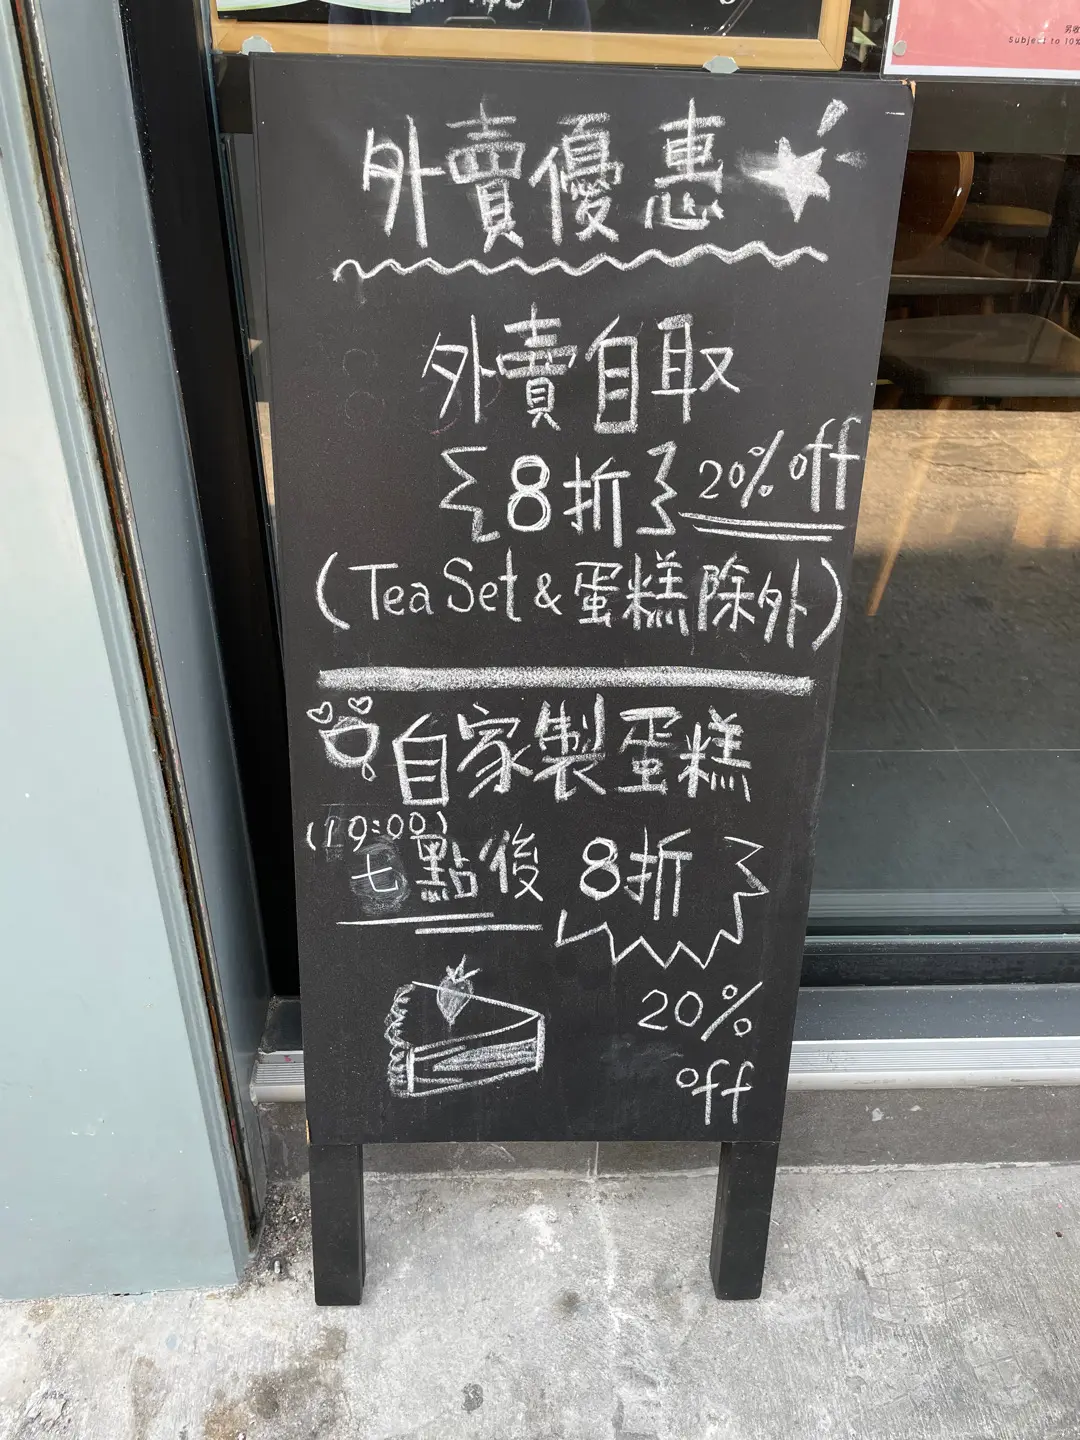 另收
Subject to 10%
外賣優惠
外賣自取
8折 20% off
(Tea Set & 蛋糕除外)
自家製蛋糕
(19:00)
七點後 8折
20%
off